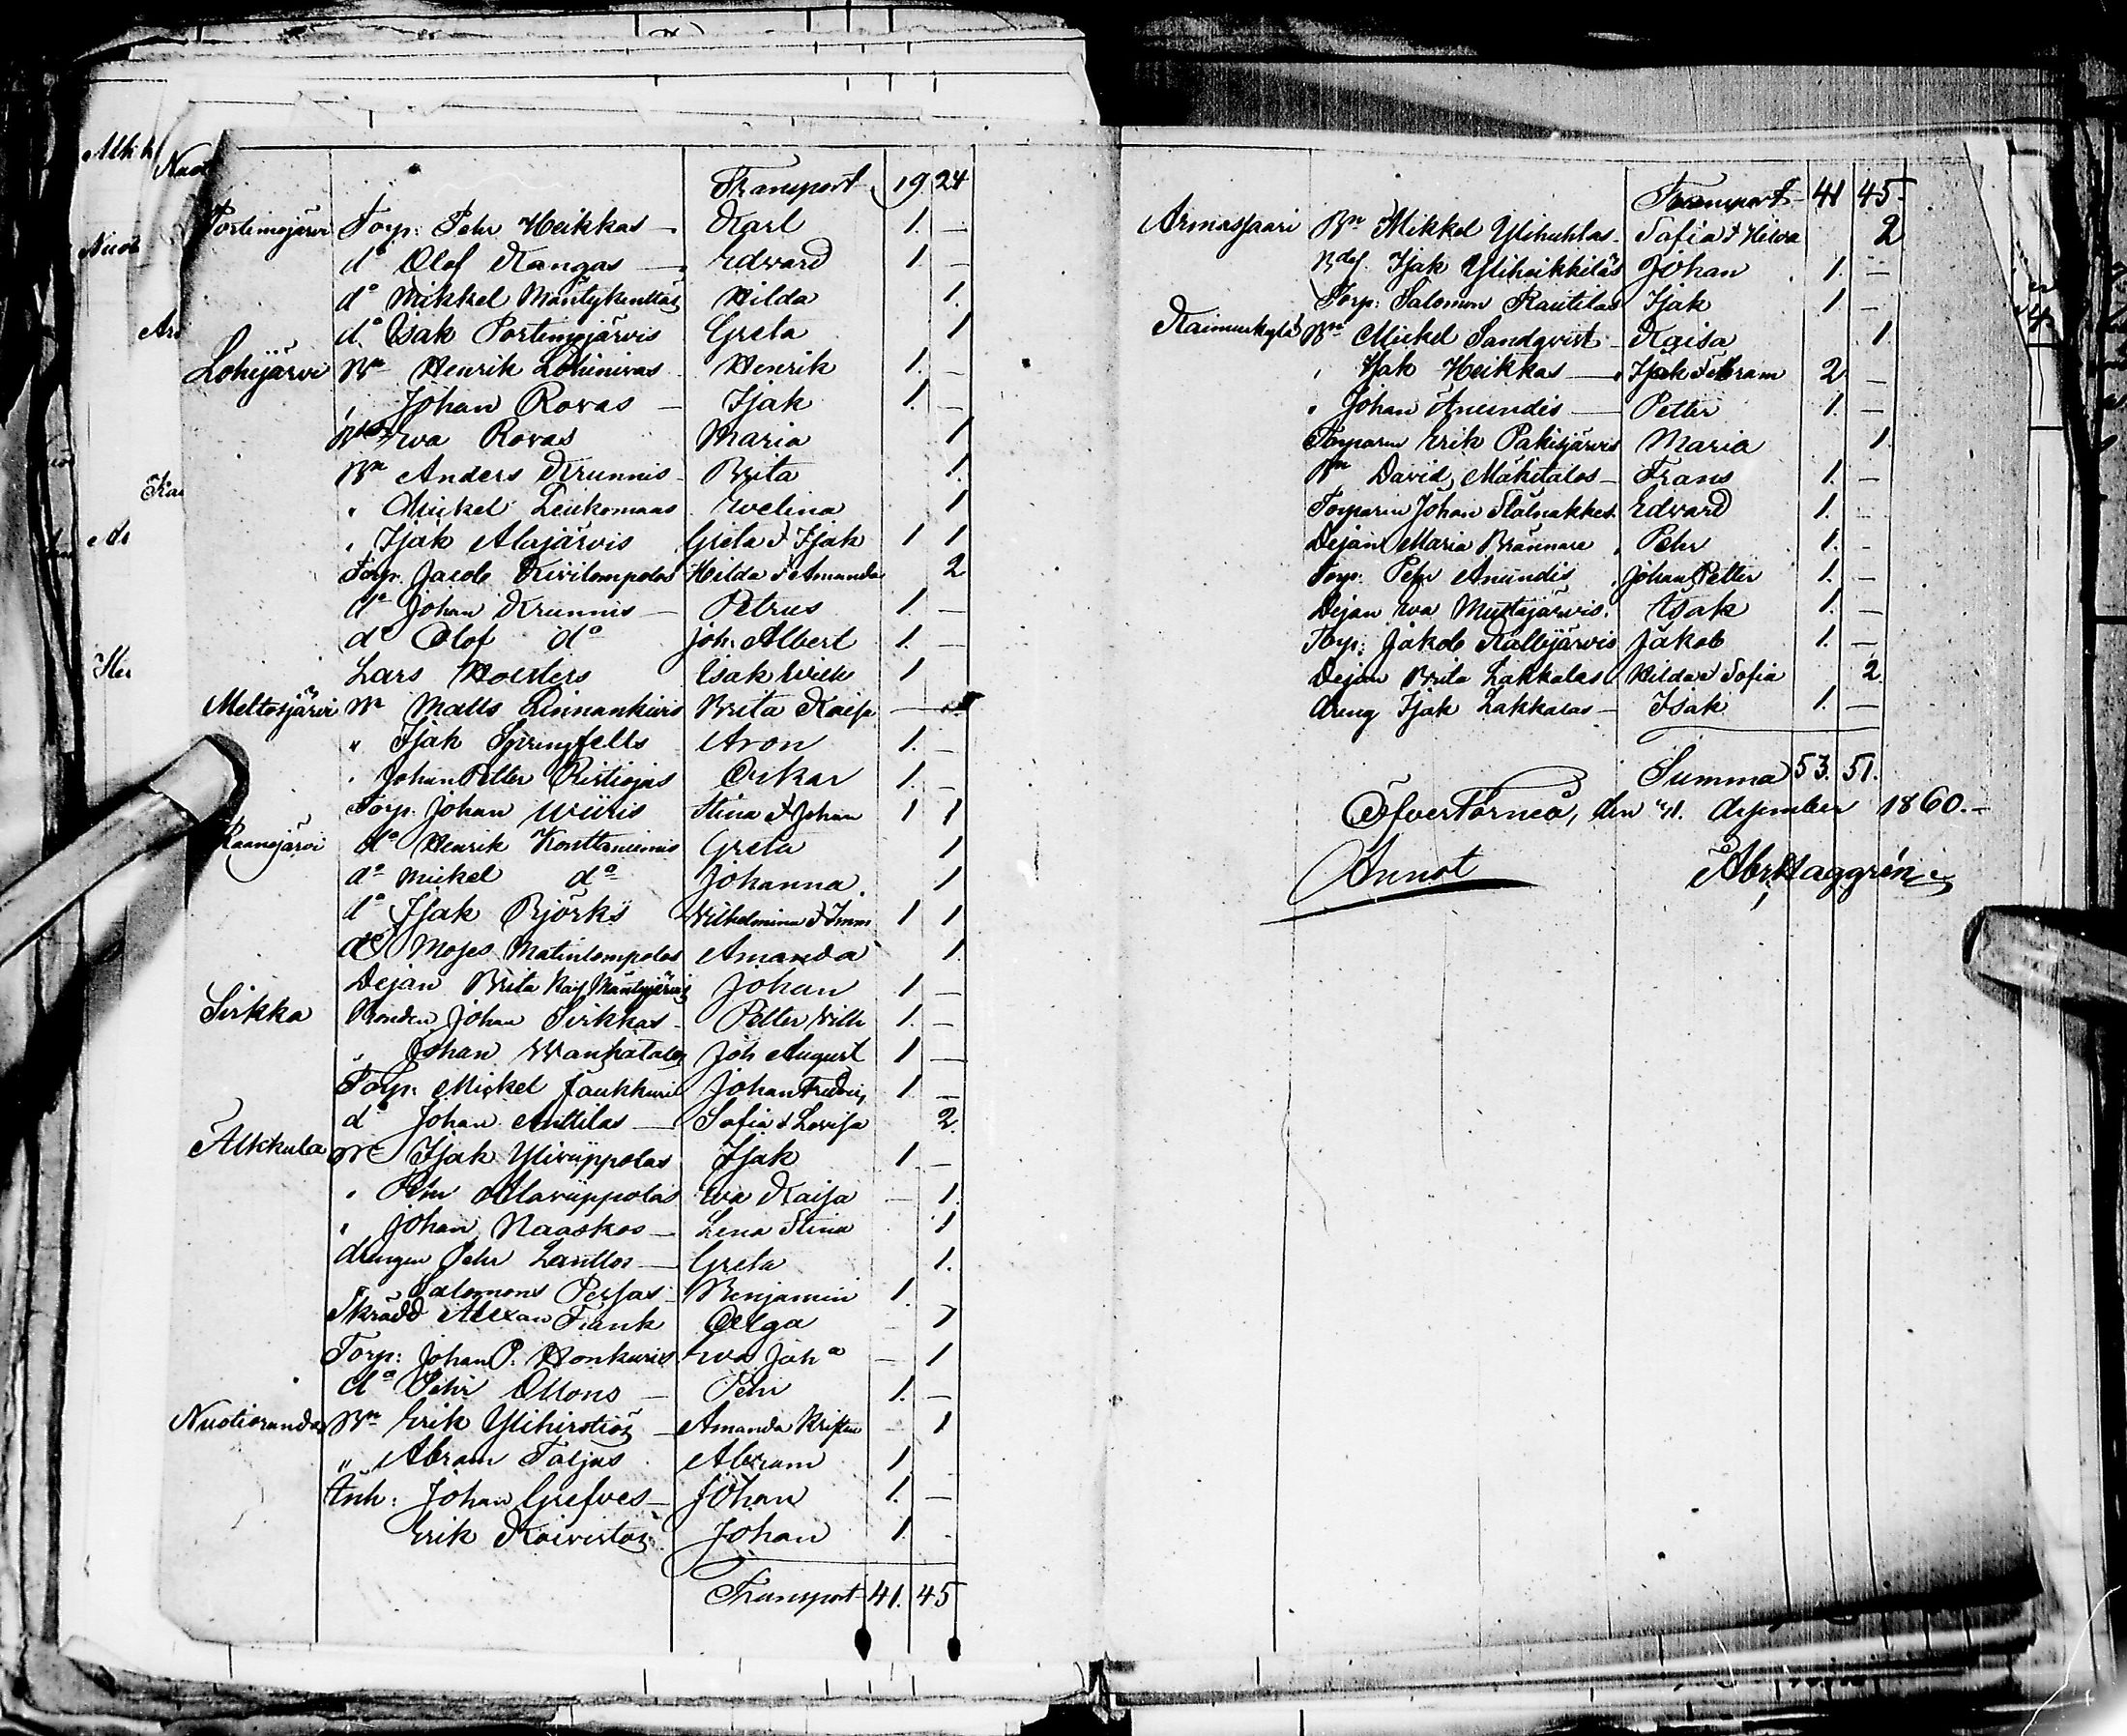 Transport 19. 24
Portimojärvi Torp: Pehr Heikkas — Karl 1. —
do Olof Kangas — Edvard 1. —
do Mikkel Mäntykenttäs Hilda 1.
do Isak Portimojärvis Greta 1
Lohijärvi Bn Henrik Lohinivas Henrik 1. —
, Johan Rovas — Isak 1. —
Eva Rovas Maria 1
Bn Anders Krunnis Brita 1.
" Mickel Leukomaas Evelina 1
" Isak Alajärvis Greta & Isak 1 1
Torp. Jacob Kivilompolos Hilda & Amanda 2
do Johan Krunnis — Petrus 1. —
do Olof do Joh. Albert 1. —
Lars Isak Wilh 1
Meltosjärvi Bn Matts Linnankivis Brita Kaisa —
" Isak Springfelts Aron 1. —
" Johan Petter Ristiojas Oskar 1. —
Torp. Johan Stina & Johan 1 1
Raanojärvi do Henrik Konttaniemis Greta 1
do Mickel do Johanna. 1
do Isak Björks Wilhelmina & 1 1
do Moses Matinlompolos Amanda 1
Dejan Brita Johan 1 —
Sirkka Bonden Johan Sirkkas — Petter Wilh 1. —
" Johan Wanhatalos Joh August 1 —
Torp: Mickel Johan Fredric 1 —
d Johan Anttilas — Sofia & Lovisa 2.
Alkkula Isak Ylivüppolas Isak 1 —
" Pehr Alavüppolas Eva Kaisa — 1.
" Johan Naaskos — Lena Stina 1
drengen Pehr Lanttos — Greta 1.
" Salomons Persas Benjamin 1.
Skrädd Alexan Frank Olga 1
Torp: Johan P. Honkavis Eva Joha — 1
do Pehr Ollons — Pehr 1. —
Nuotioranda Bn Erik Ylihirstiös — Amanda Kristin 1
" Abram Taljas Abram 1
Inh: Johan Grefves — Johan 1. —
Erik Koivistos Johan 1.
Transport 41. 45
Transport — 41 45.
Armassaari Bn Mikkel Ylihuhtas. Sofia & Hilda 2
Isak Yliheikkiläs Johan 1. —
Torp: Salomon Rautilas Isak 1. —
Kainuukylä Bn Mickel Sandqvist — Kaisa 1.
" Isak Heikkas — Isak & Abram 2 —
" Johan Anundis — Petter 1. —
Torparen Erik Pakisjärvis Maria 1.
Bn David Mäkitalos — Frans 1. —
Torparen Johan Stålnakkes. Edvard 1. —
Dejan Maria Brännare Pehr 1. —
Torp. Pehr Anundis Johan Petter 1. —
Dejan Eva Mustajärvis. Isak 1. —
Torp: Jakob Kallijärvis Jakob 1. —
Dejan Brita Lakkalas Hilda & Sofia 2.
dreng Isak Lakkalas — Isak 1. —
Summa 53. 51.
Öfver Torneå, den 31. december 1860. —
Annot Abr. Haggrén